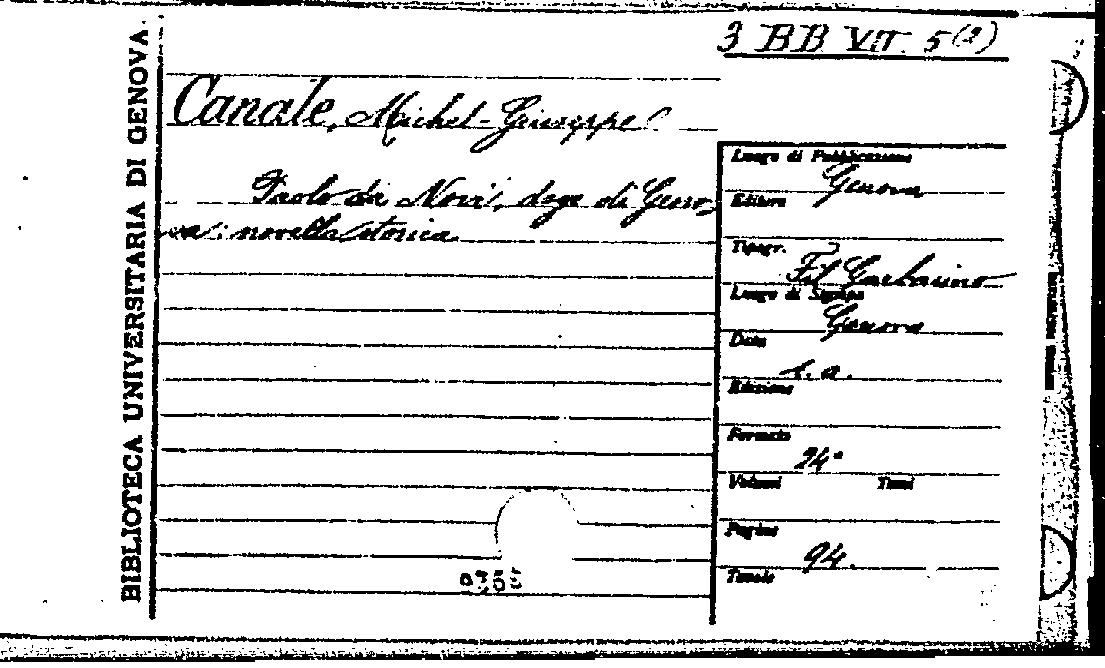 3 BB VII. 5(2)
BIBLIOTECA UNIVERSITARIA DI GENOVA
Canale, Michel-Giuseppe
Paolo da Novi, doge di Geno-
va: novella storica
Luogo di Pubblicazione
Genova
Editore
Tipogr.
Fil Garbarino
Luogo di Stampa
Genova
Data
s. a.
Edizione
Formato
24°
Volumi Tomi
Pagine
94.
Tavole